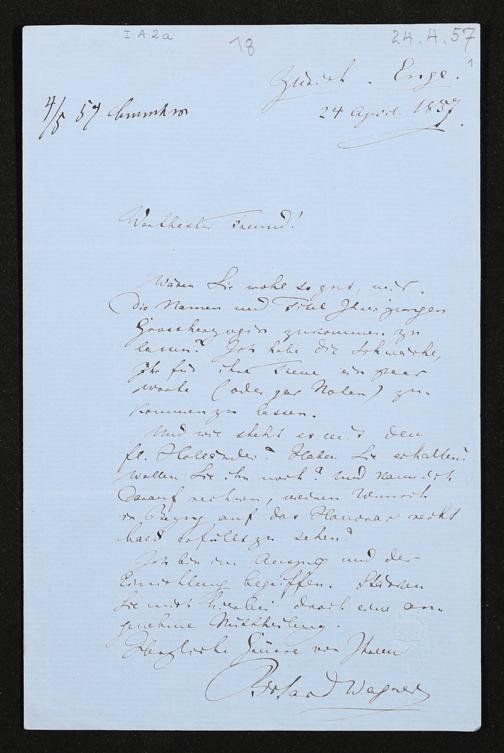 I A 2a
18
24.4.57
Zürich. Enge.
4/5 57
24 April 1857.
Werthester Freund!
Wären Sie wohl so gut, mir
die Namen und Titel Ihrer jungen
Grossherzogin zukommen zu
lassen? Ich habe die Schwäche,
ihr für ihre Treue ein paar
Worte (oder gar Noten) zu-
kommen zu lassen.
Und wie steht es mit dem
fl. Holländer? Haben Sie erhalten?
Wollen Sie ihn noch? Und kann ich
darauf rechnen, meinen Wunsch
in Bezug auf das Honorar recht
bald erfüllt zu sehen?
Ich bin im Auszug und der
Einrichtung begriffen. Stärken
Sie mich hierbei durch eine an-
genehme Mittheilung.
Herzliche Grüsse von Ihrem
Richard Wagner